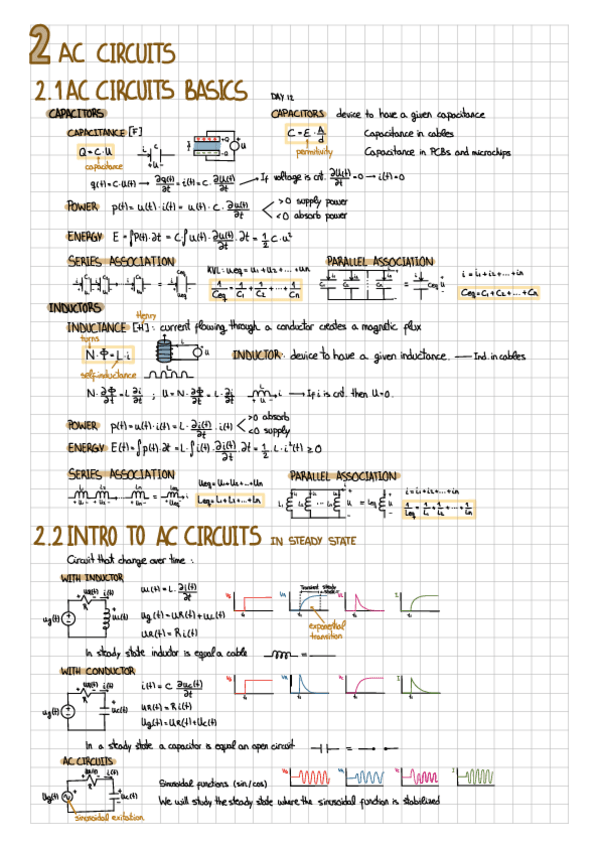 2 AC CIRCUITS
2.1 AC CIRCUITS BASICS DAY 12
CAPACITORS
CAPACITANCE [F]
Q=C·U
capacitance
CAPACITORS device to have a given capacitance
C=E·A/d Capacitance in cables
permitivity Capacitance in PCBs and microchips
q(t)=C·U(t) → ∂q(t)/∂t = i(t)=C·∂U(t)/∂t → If voltage is cnt. ∂U(t)/∂t=0 → i(t)=0
POWER p(t)=u(t)·i(t)=u(t)·C·∂u(t)/∂t
>0 supply power
<0 absorb power
ENERGY E=∫P(t)·∂t=C∫u(t)·∂u(t)/∂t·∂t=1/2 C·u²
SERIES ASSOCIATION
KVL: ueq=u1+u2+...+un
1/Ceq=1/C1+1/C2...1/Cn
PARALLEL ASSOCIATION
i=i1+i2+...+in
Ceq=C1+C2+...+Cn
INDUCTORS
Henry
INDUCTANCE [H]: current flowing through a conductor creates a magnetic flux
turns
N·Φ=L·i
self-inductance
INDUCTOR: device to have a given inductance. — Ind. in cables
N·∂Φ/∂t=L ∂i/∂t ; U=N·∂Φ/∂t=L·∂i/∂t → If i is cnt. then U=0.
POWER p(t)=u(t)·i(t)=L·∂i(t)/∂t·i(t)
>0 absorb
<0 supply
ENERGY E(t)=∫p(t)·∂t=L·∫i(t)·∂i(t)/∂t·∂t=1/2·L·i²(t)≥0
SERIES ASSOCIATION
Ueq=U1+U2+...+Un
Leq=L1+L2+...+Ln
PARALLEL ASSOCIATION
i=i1+i2+...+in
1/Leq=1/L1+1/L2+...+1/Ln
2.2 INTRO TO AC CIRCUITS IN STEADY STATE
Circuit that change over time:
WITH INDUCTOR
uL(t)=L·∂i(t)/∂t
ug(t)=uR(t)+uL(t)
uR(t)=R i(t)
Transient steady state
exponential transition
In steady state inductor is equal a cable
WITH CONDUCTOR
i(t)=C ∂uc(t)/∂t
uR(t)=R i(t)
Ug(t)=UR(t)+Uc(t)
In a steady state a capacitor is equal an open circuit
AC CIRCUITS
Sinusoidal functions (sin/cos)
We will study the steady state where the sinusoidal function is stabilized
sinusoidal exitation